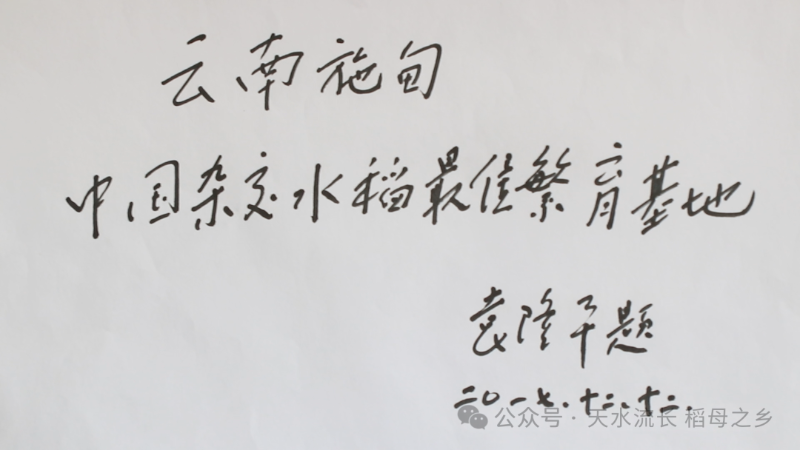 云南施甸
中国杂交水稻最佳繁育基地
袁隆平题
二〇一七.十二.十二.
公众号·天水流长 稻母之乡